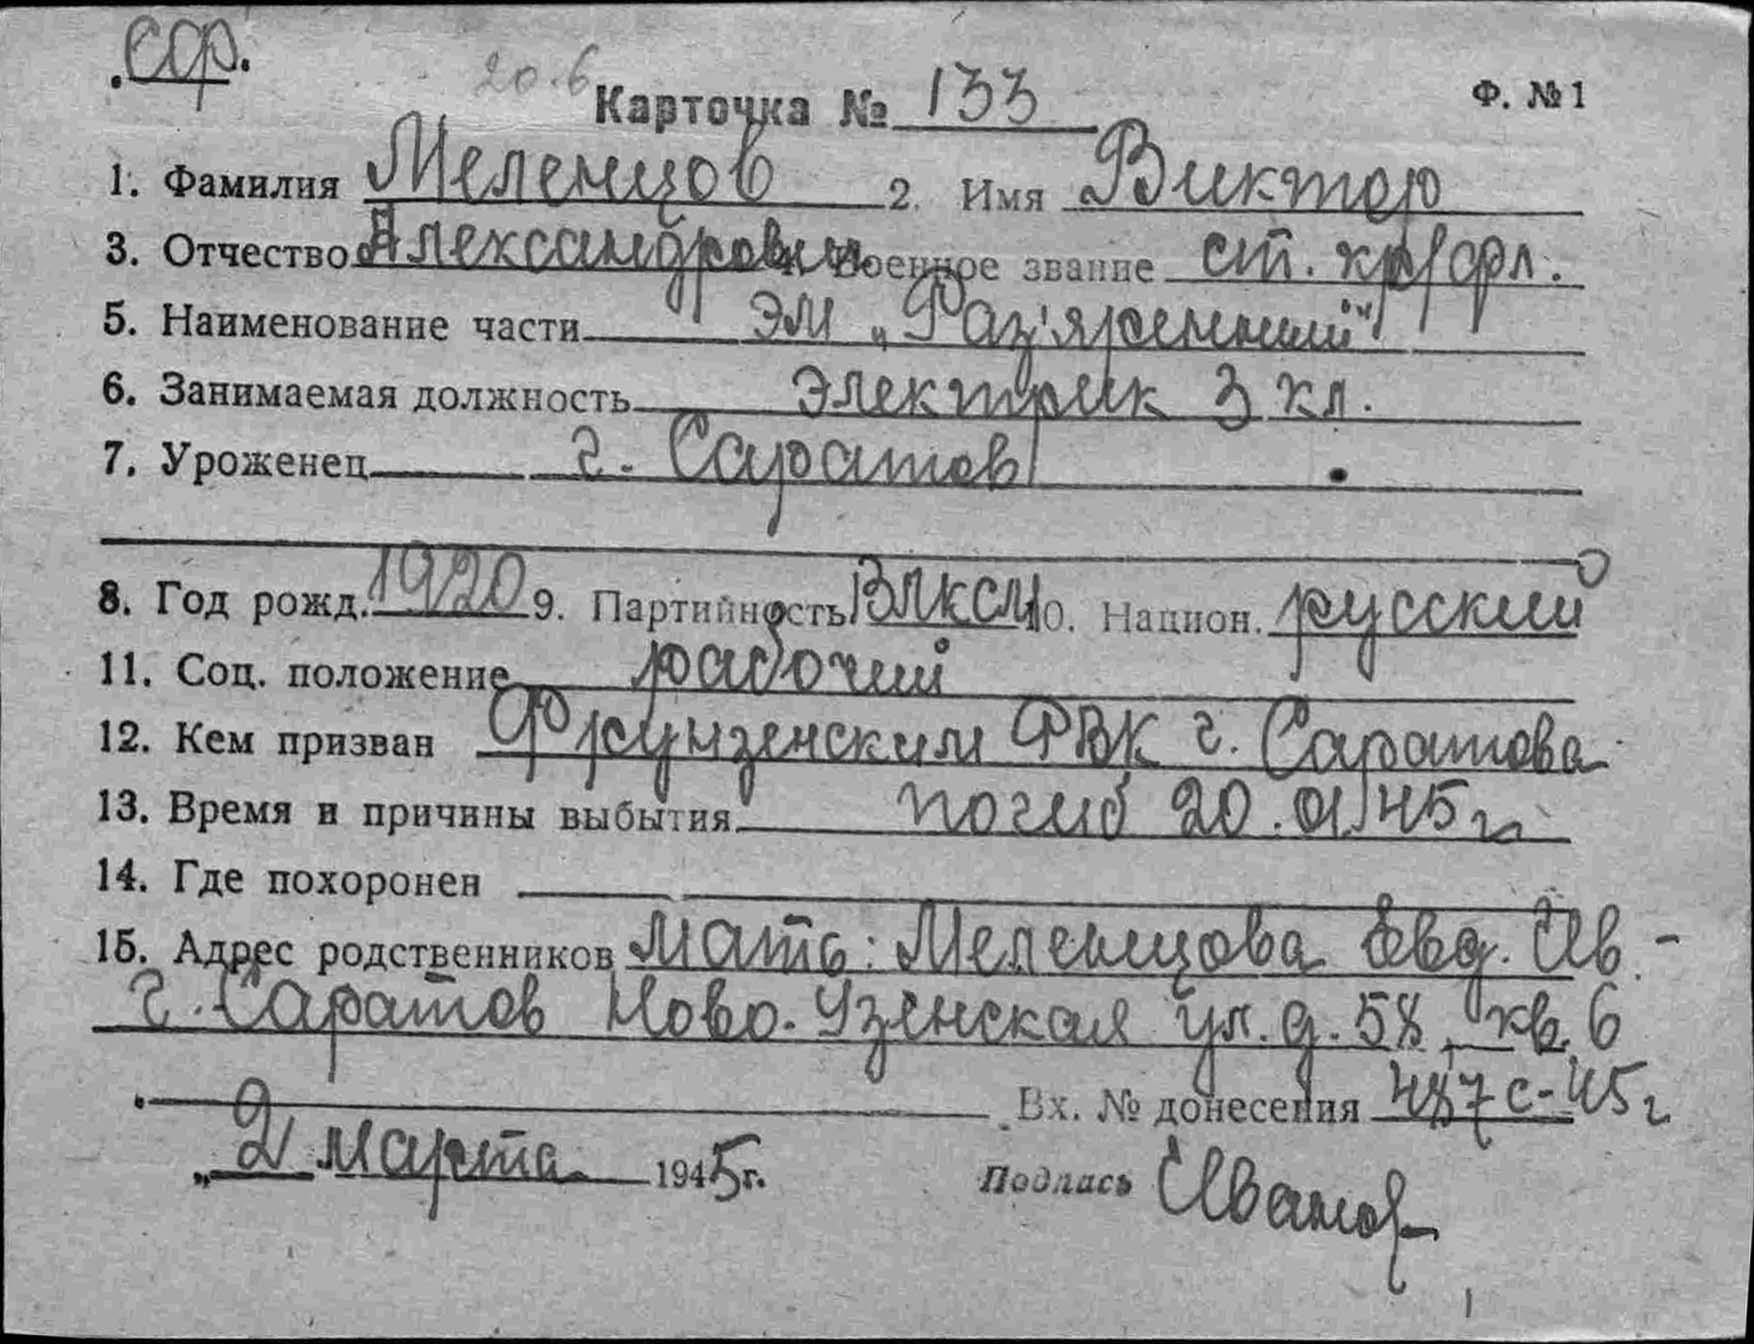 ССР.
20.6
Карточка № 133
Ф. № 1
1. Фамилия Меленцов 2. Имя Виктор
3. Отчество Александрович 4. Военное звание ст. кр/фл.
5. Наименование части ЭМ „Раз'яренный"
6. Занимаемая должность электрик 3 кл.
7. Уроженец г. Саратов
8. Год рожд. 1920 9. Партийность ВЛКСМ 10. Национ. русский
11. Соц. положение рабочий
12. Кем призван Фрунзенским РВК г. Саратова
13. Время и причины выбытия погиб 20.01.45 г.
14. Где похоронен
15. Адрес родственников мать: Меленцова Евд. Ив. -
г. Саратов Ново-Узенская ул. д. 58, кв. 6
Вх. № донесения 487с-45 г
„2 марта 1945 г.
Подпись Иванов